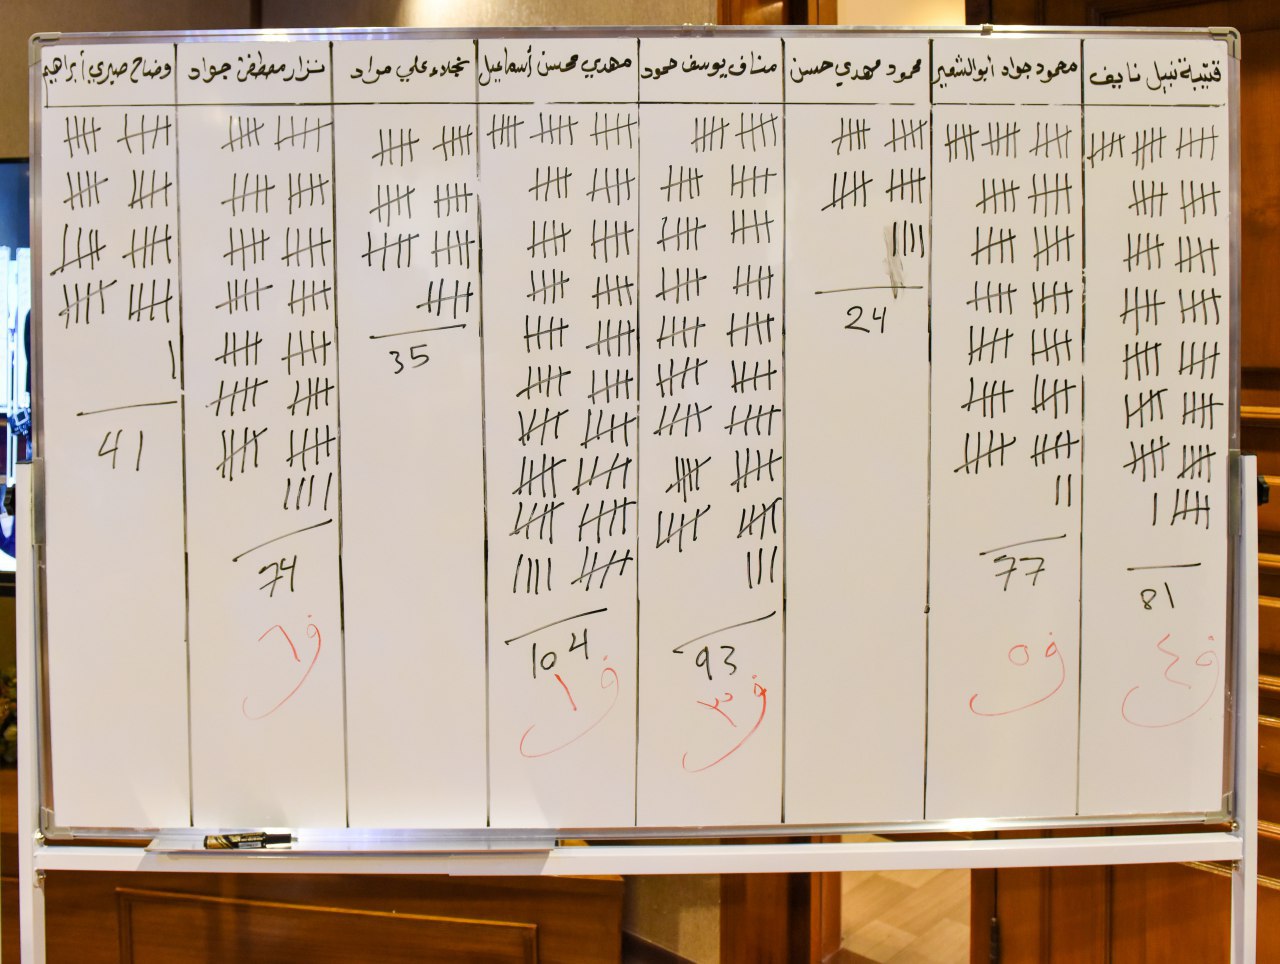 قتيبة نبيل نايف
محمود جواد أبو الشعير
محمود مهدي حسن
مناف يوسف حمود
مهدي محسن أسماعيل
نجلاء علي مراد
نزار مصطفى جواد
وضاح صبري أبراهيم
81
77
24
93
104
35
74
41
ف٤
ف٥
ف٣
ف١
ف٦